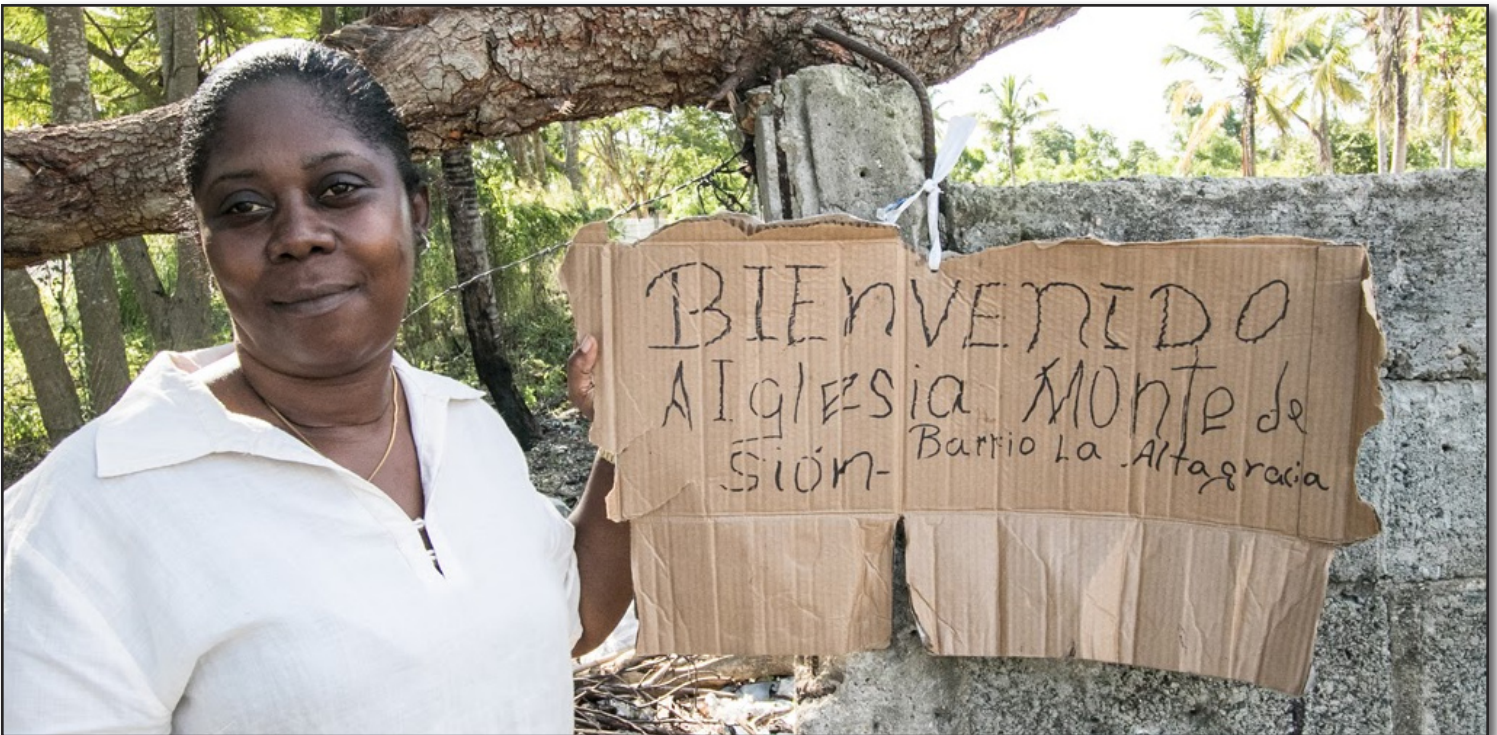 BIEnVENIDO
A IglEsia MOnte de
Sión-
Barrio La Altagracia